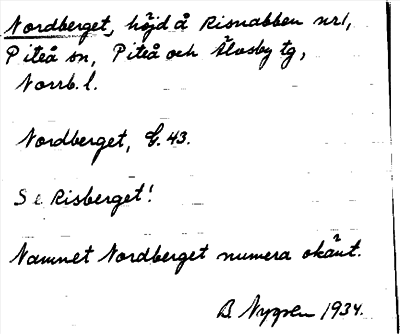 Nordberget, höjd å Risnabben nr 1,
Piteå sn, Piteå och Älvsby tg,
Norrb. l.
Nordberget, G. 43.
Se Risberget!
Namnet Nordberget numera okänt.
B. Nygren 1934.